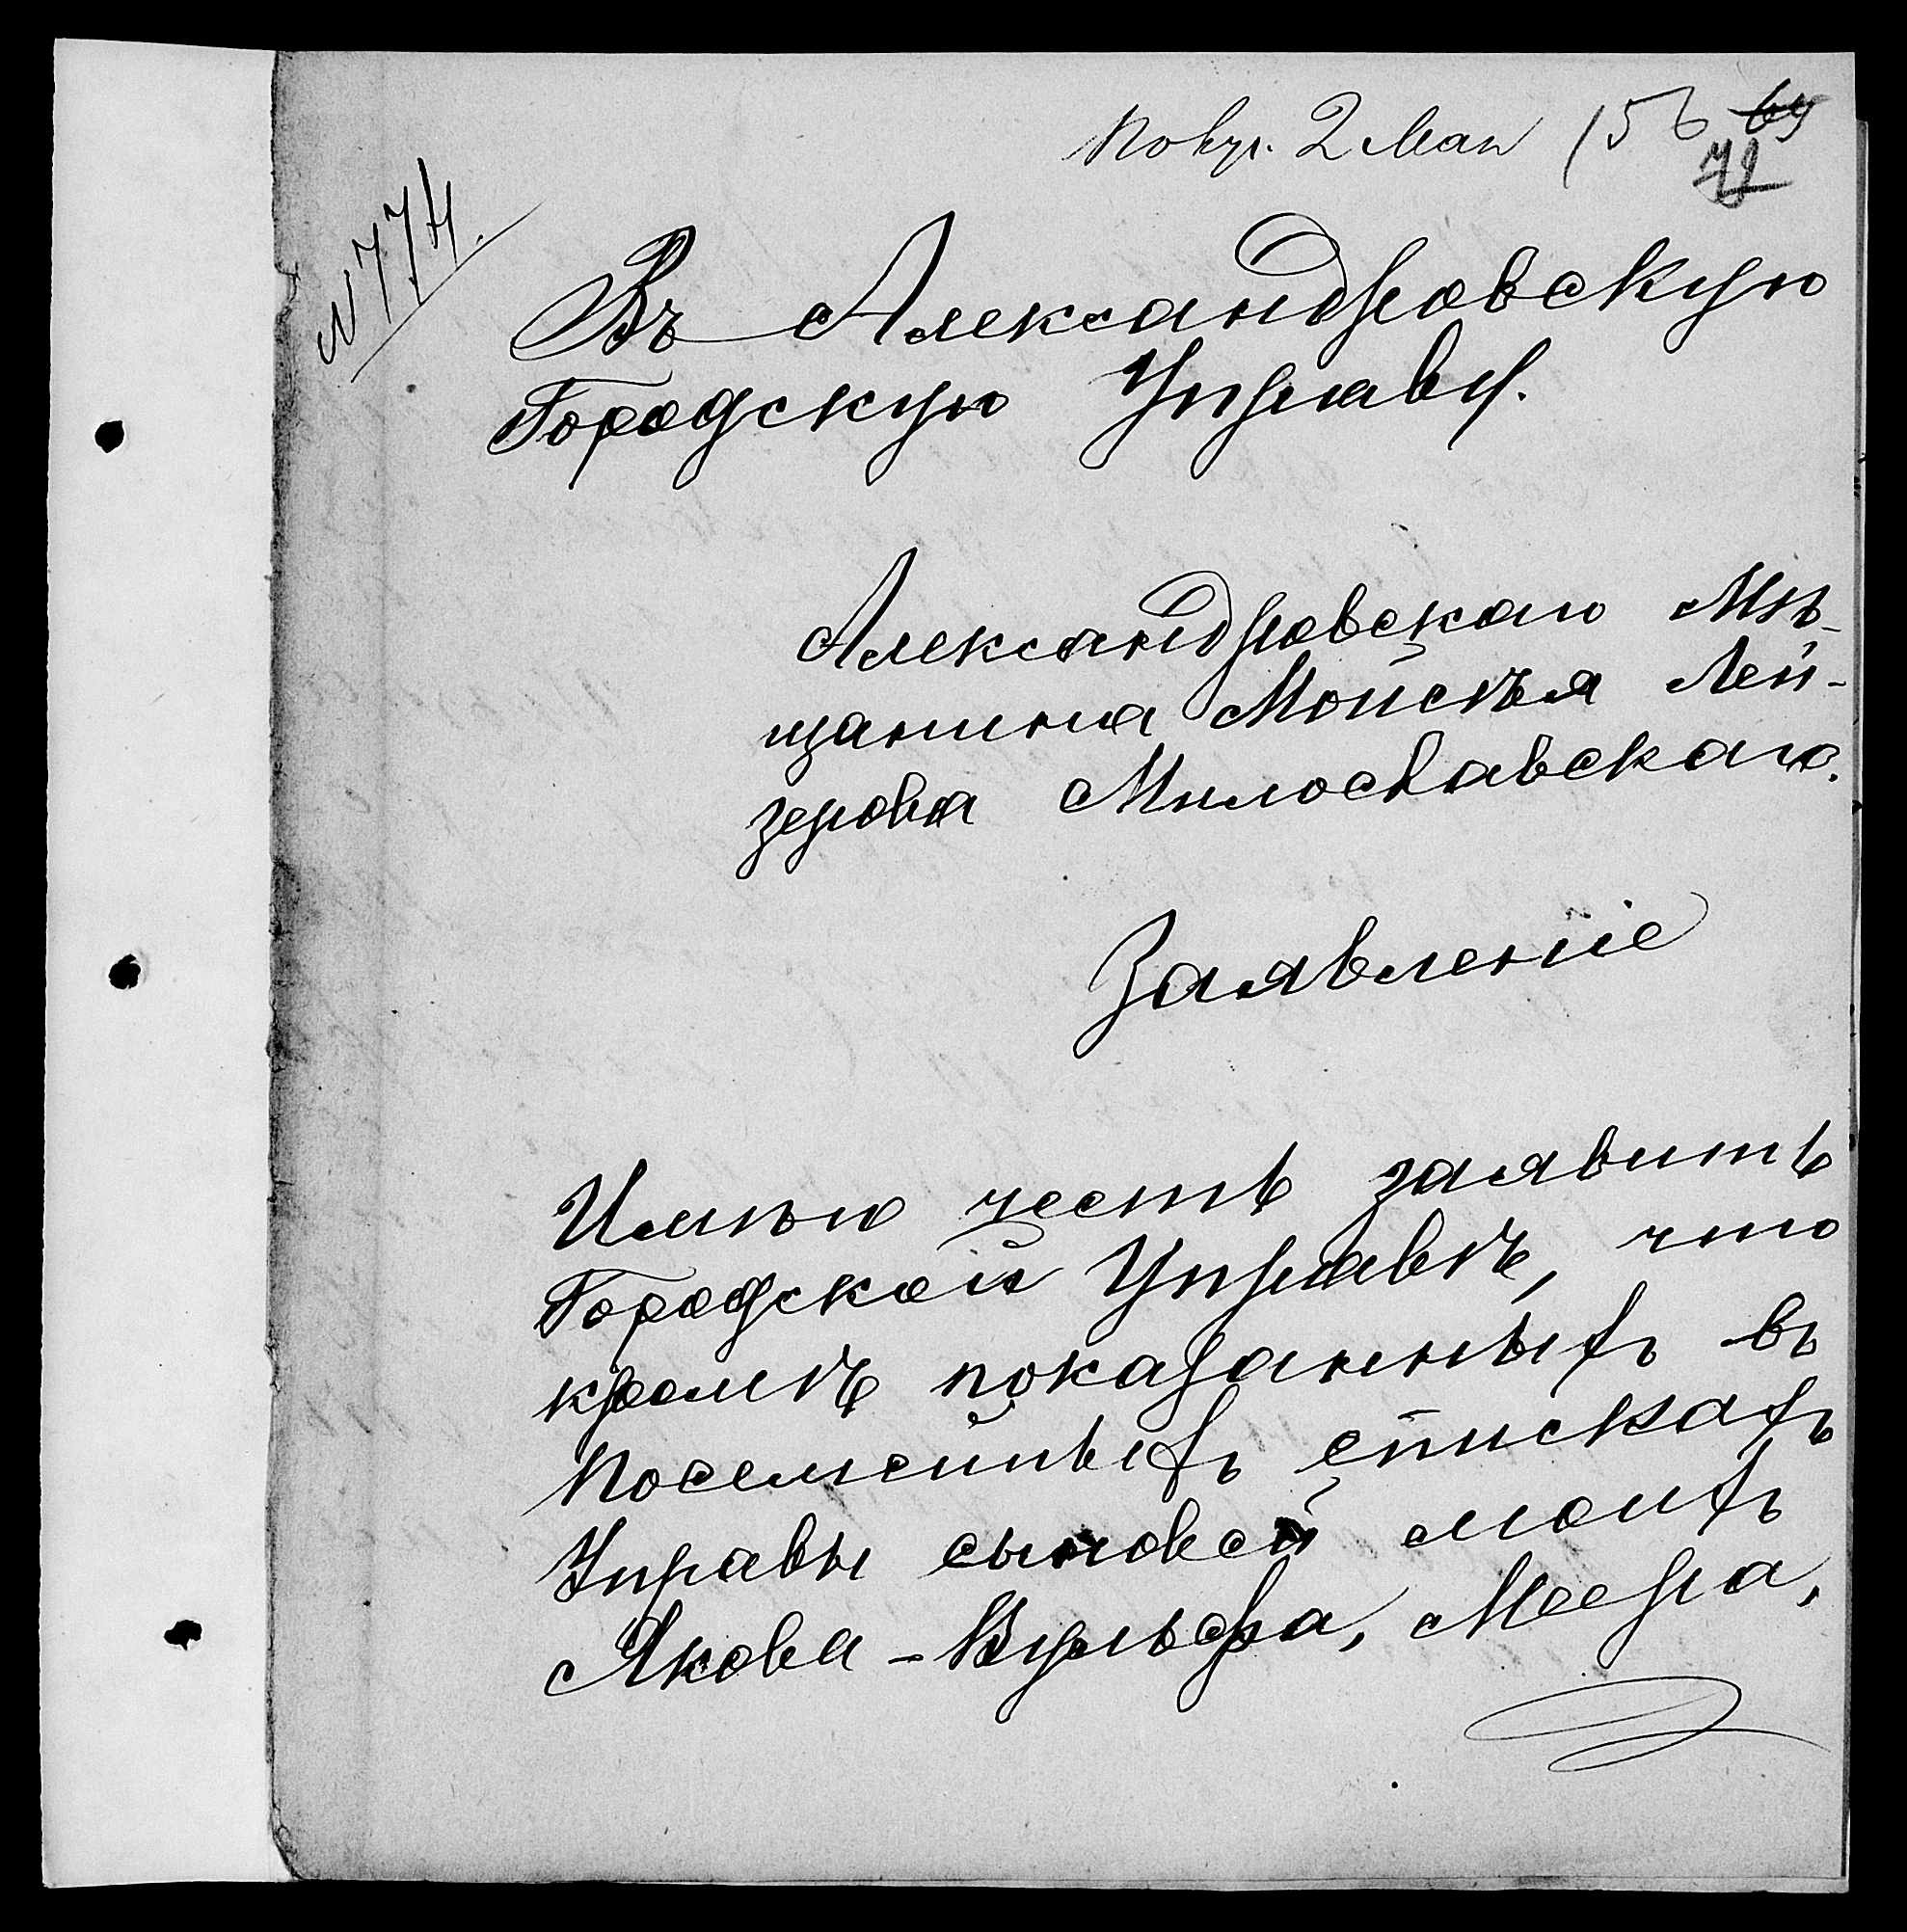 Получ. 2 Мая 156 69
78
№ 774.
Въ Александровскую
Городскую Управу.
Александровскаго Мѣ-
щанина Мойсѣя Лей-
зерова Милославскаго.
Заявленіе
Имѣю честь заявить
Городской Управѣ, что
кромѣ показанныхъ въ
посемейныхъ спискахъ
Управы сыновей моихъ
Якова-Вульфа, Меера,